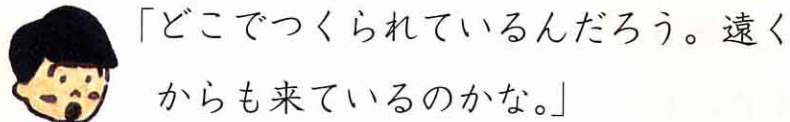 「どこでつくられているんだろう。遠く
からも来ているのかな。」